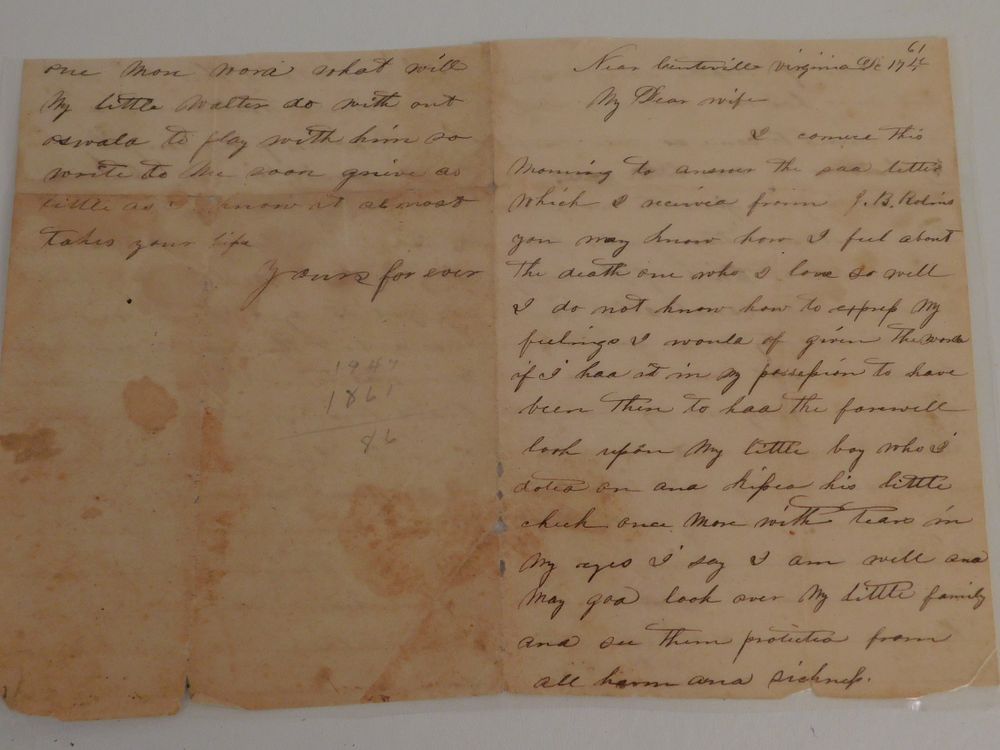 Near Centeville Virginia Dc 17th 61
My Dear wife
I comence this
Morning to answer the sad letter
which I receivied from J. B. Robins
you may know how I feel about
the death one who I love so well
I do not know how to express My
feelings I would of given the world
if I had it in my possession to have
been then to had the farewell
look upon My little boy who I
doted on and kissed his little
cheek once More with tears in
My eyes I say I am well and
May god look over My little family
and see them protected from
all harm and sickness.
one Mon word what will
My little Walter do with out
oswald to play with him so
write to Me soon grieve as
little as know it al most
takes your life
Yours for ever
1947
1861
86